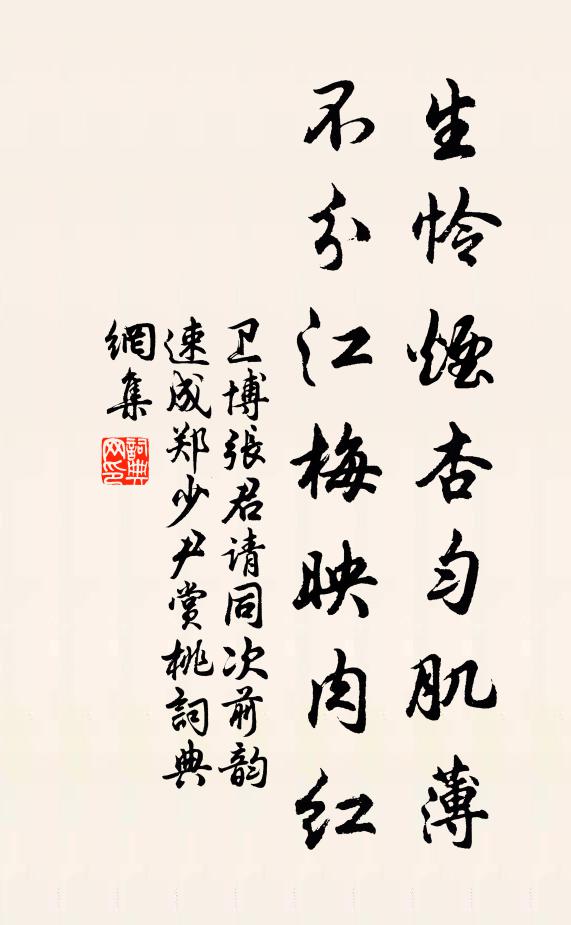 生怜煙杏匀肌薄
不分江梅映肉红
卫博張君请同次前韵
速成郑少尹赏桃詞典
網集
詞典
网印